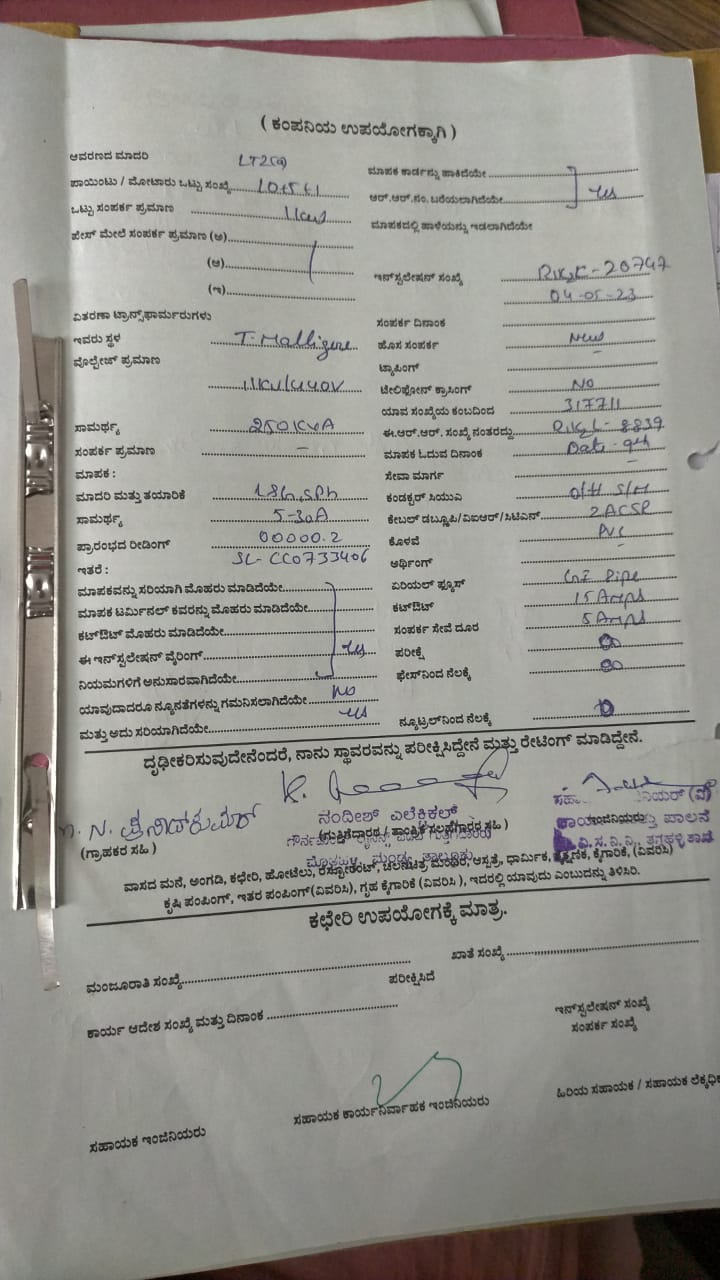 ( ಕಂಪನಿಯ ಉಪಯೋಗಕ್ಕಾಗಿ )
ಆವರಣದ ಮಾದರಿ LT2(a)
ಪಾಯಿಂಟು / ಮೋಟಾರು ಒಟ್ಟು ಸಂಖ್ಯೆ
ಒಟ್ಟು ಸಂಪರ್ಕ ಪ್ರಮಾಣ
ಫೇಸ್ ಮೇಲೆ ಸಂಪರ್ಕ ಪ್ರಮಾಣ (ಅ)
(ಆ)
(ಇ)
ವಿತರಣಾ ಟ್ರಾನ್ಸ್‌ಫಾರ್ಮರುಗಳು
ಇವರು ಸ್ಥಳ T. Malligere
ವೋಲ್ಟೇಜ್ ಪ್ರಮಾಣ
11KV/440V
ಸಾಮರ್ಥ್ಯ 250KVA
ಸಂಪರ್ಕ ಪ್ರಮಾಣ –
ಮಾಪಕ :
ಮಾದರಿ ಮತ್ತು ತಯಾರಿಕೆ
ಸಾಮರ್ಥ್ಯ 5-30A
ಪ್ರಾರಂಭದ ರೀಡಿಂಗ್ 00000.2
ಇತರೆ : SL- CC0733406
ಮಾಪಕವನ್ನು ಸರಿಯಾಗಿ ಮೊಹರು ಮಾಡಿದೆಯೇ
ಮಾಪಕ ಟರ್ಮಿನಲ್ ಕವರನ್ನು ಮೊಹರು ಮಾಡಿದೆಯೇ
ಕಟ್‌ಔಟ್ ಮೊಹರು ಮಾಡಿದೆಯೇ
ಈ ಇನ್‌ಸ್ಟಲೇಷನ್ ವೈರಿಂಗ್ yes
ನಿಯಮಗಳಿಗೆ ಅನುಸಾರವಾಗಿದೆಯೇ
ಯಾವುದಾದರೂ ನ್ಯೂನತೆಗಳನ್ನು ಗಮನಿಸಲಾಗಿದೆಯೇ No
ಮತ್ತು ಅದು ಸರಿಯಾಗಿದೆಯೇ yes
ಮಾಪಕ ಕಾರ್ಡನ್ನು ಹಾಕಿದೆಯೇ
ಆರ್.ಆರ್.ನಂ. ಬರೆಯಲಾಗಿದೆಯೇ yes
ಮಾಪಕದಲ್ಲಿ ಹಾಳೆಯನ್ನು ಇಡಲಾಗಿದೆಯೇ
ಇನ್‌ಸ್ಟಲೇಷನ್ ಸಂಖ್ಯೆ
04-05-23
ಸಂಪರ್ಕ ದಿನಾಂಕ
ಹೊಸ ಸಂಪರ್ಕ New
ಟ್ಯಾಪಿಂಗ್ –
ಟೆಲಿಫೋನ್ ಕ್ರಾಸಿಂಗ್ NO
ಯಾವ ಸಂಖ್ಯೆಯ ಕಂಬದಿಂದ
ಈ.ಆರ್.ಆರ್. ಸಂಖ್ಯೆ ನಂತರದ್ದು
ಮಾಪಕ ಓದುವ ದಿನಾಂಕ
ಸೇವಾ ಮಾರ್ಗ –
ಕಂಡಕ್ಟರ್ ಸಿಯುಎ O/H S/M
ಕೇಬಲ್ ಡಬ್ಲೂಪಿ/ಎಐಆರ್/ಸಿಟಿಎಸ್ 2ACSR
ಕೊಳವೆ PVC
ಅರ್ಥಿಂಗ್ –
ಏರಿಯಲ್ ಫ್ಯೂಸ್ GI Pipe
ಕಟ್‌ಔಟ್ 15 Amps
ಸಂಪರ್ಕ ಸೇವೆ ದೂರ 5 Amps
ಪರೀಕ್ಷೆ
ಫೇಸ್‌ನಿಂದ ನೆಲಕ್ಕೆ
ನ್ಯೂಟ್ರಲ್‌ನಿಂದ ನೆಲಕ್ಕೆ
ದೃಢೀಕರಿಸುವುದೇನೆಂದರೆ, ನಾನು ಸ್ಥಾವರವನ್ನು ಪರೀಕ್ಷಿಸಿದ್ದೇನೆ ಮತ್ತು ರೇಟಿಂಗ್ ಮಾಡಿದ್ದೇನೆ.
ನಂದೀಶ್ ಎಲೆಕ್ಟ್ರಿಕಲ್
(ಗ್ರಾಹಕರ ಸಹಿ )
(ಗುತ್ತಿಗೆದಾರರ / ತಾಂತ್ರಿಕ ಸಲಹೆಗಾರರ ಸಹಿ )
ವಾಸದ ಮನೆ, ಅಂಗಡಿ, ಕಛೇರಿ, ಹೋಟೆಲು, ರೆಸ್ಟೋರೆಂಟ್, ಚಲನಚಿತ್ರ ಮಂದಿರ, ಆಸ್ಪತ್ರೆ, ಧಾರ್ಮಿಕ, ಶೈಕ್ಷಣಿಕ, ಕೈಗಾರಿಕೆ, (ವಿವರಿಸಿ)
ಕೃಷಿ ಪಂಪಿಂಗ್, ಇತರ ಪಂಪಿಂಗ್(ವಿವರಿಸಿ), ಗೃಹ ಕೈಗಾರಿಕೆ (ವಿವರಿಸಿ ), ಇದರಲ್ಲಿ ಯಾವುದು ಎಂಬುದನ್ನು ತಿಳಿಸಿರಿ.
ಕಛೇರಿ ಉಪಯೋಗಕ್ಕೆ ಮಾತ್ರ.
ಮಂಜೂರಾತಿ ಸಂಖ್ಯೆ
ಖಾತೆ ಸಂಖ್ಯೆ
ಪರೀಕ್ಷಿಸಿದೆ
ಕಾರ್ಯ ಆದೇಶ ಸಂಖ್ಯೆ ಮತ್ತು ದಿನಾಂಕ
ಇನ್‌ಸ್ಟಲೇಷನ್ ಸಂಖ್ಯೆ
ಸಂಪರ್ಕ ಸಂಖ್ಯೆ
ಸಹಾಯಕ ಇಂಜಿನಿಯರು
ಸಹಾಯಕ ಕಾರ್ಯನಿರ್ವಾಹಕ ಇಂಜಿನಿಯರು
ಹಿರಿಯ ಸಹಾಯಕ / ಸಹಾಯಕ ಲೆಕ್ಕಧಿಕ